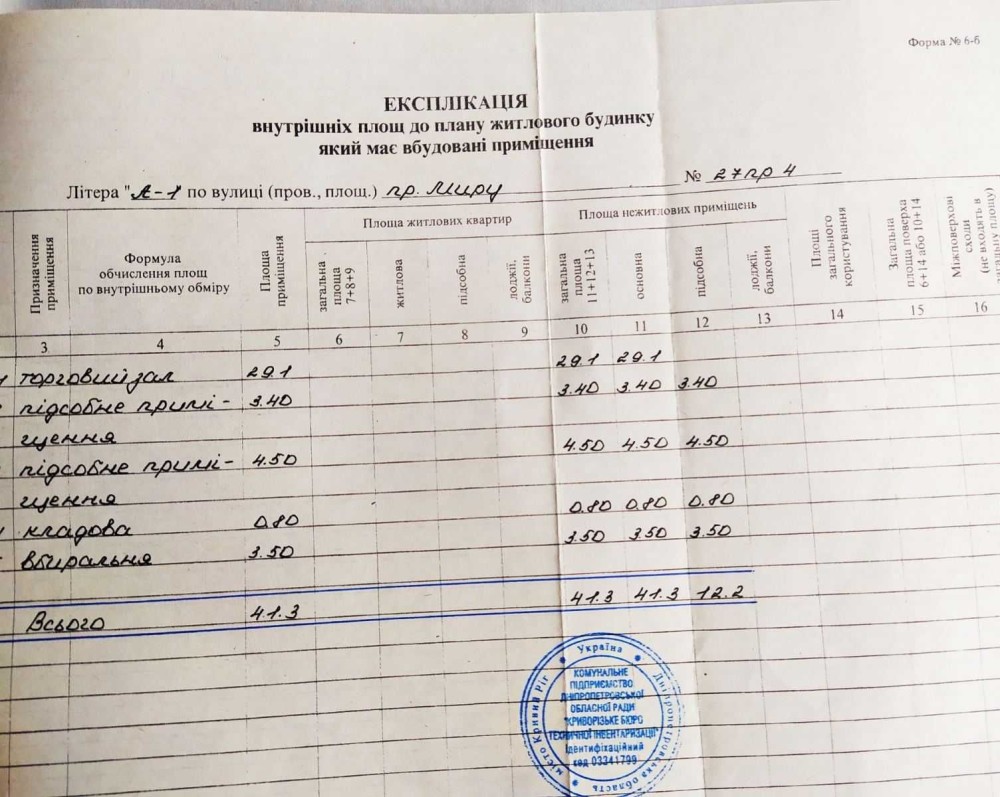 Форма № 6-б
ЕКСПЛІКАЦІЯ
внутрішніх площ до плану житлового будинку
який має вбудовані приміщення
Літера "А-1" по вулиці (пров., площ.) пр. Миру № 27 пр 4
Призначення приміщення
Формула обчислення площ по внутрішньому обміру
Площа приміщення
Площа житлових квартир
загальна площа 7+8+9
житлова
підсобна
лоджії, балкони
Площа нежитлових приміщень
загальна площа 11+12+13
основна
підсобна
лоджії, балкони
Площі загального користування
Загальна площа поверха 6+14 або 10+14
Міжповерхові сходи (не входять в загальну площу)
3 4 5 6 7 8 9 10 11 12 13 14 15 16
торговий зал 29.1 29.1 29.1
підсобне примі- 3.40 3.40 3.40 3.40
щення
підсобне примі- 4.50 4.50 4.50 4.50
щення
кладова 0.80 0.80 0.80 0.80
вбиральня 3.50 3.50 3.50 3.50
Всього 41.3 41.3 41.3 12.2
Україна
Дніпропетровська область
місто Кривий Ріг
КОМУНАЛЬНЕ
ПІДПРИЄМСТВО
ДНІПРОПЕТРОВСЬКОЇ
ОБЛАСНОЇ РАДИ
"КРИВОРІЗЬКЕ БЮРО
ТЕХНІЧНОЇ ІНВЕНТАРИЗАЦІЇ"
Ідентифікаційний
код 03341799